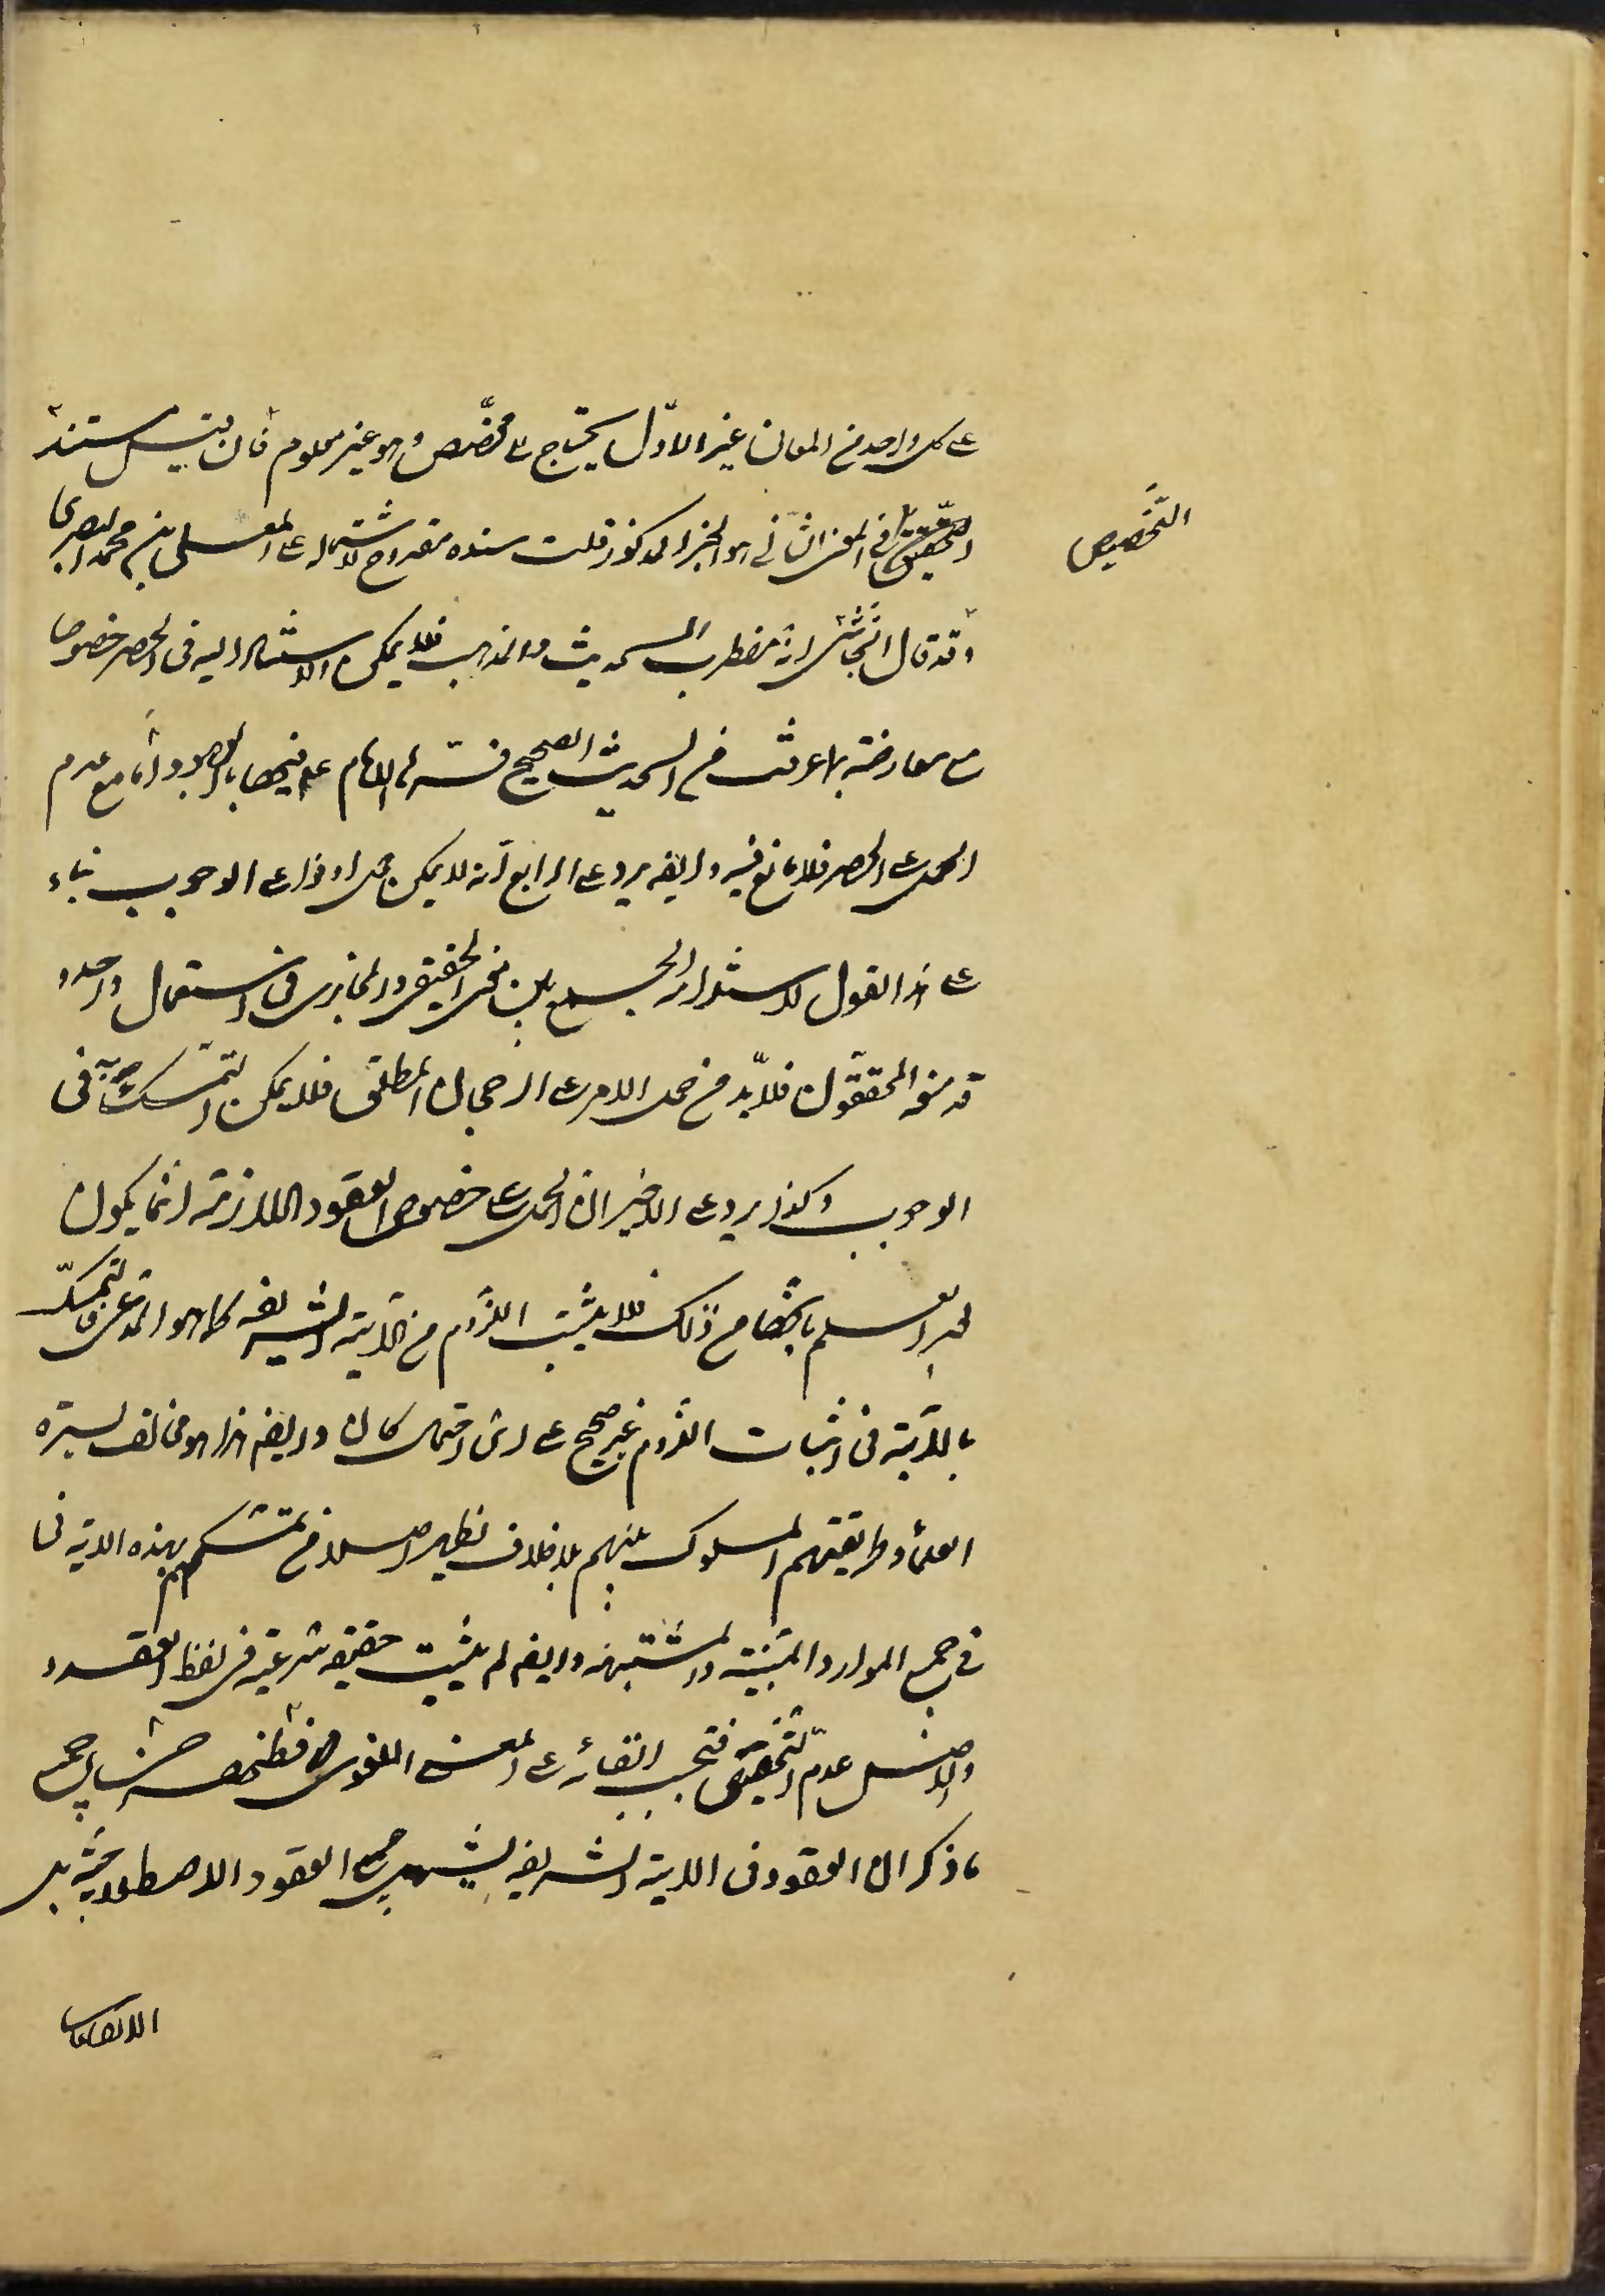 على كل واحد من المعانى غير الاوّل يحتاج الى مخصّص وهو غير معلوم فان قيل مستند
التخصيص
التحقيق فى المعنى الثانى هو الخبر المذكور قلت سنده مقدوح لاشتماله على المعلى بن محمد البصرى
وقد قال النجاشى انه مضطرب الحديث والمذهب فلا يمكن الاستناد اليه فى الحصر خصوصا
مع معارضته بما عرفت من الحديث الصحيح فسّر الامام عم فيها بالعهود وامّا مع عدم
الحمل على الحصر فلا مانع فيه وايضه يرد على الرابع انّه لا يمكن حمل اوفوا على الوجوب بناء
على هذا القول لاستلزامه الجمع بين معنى الحقيقى والمجازى فى استعمال واحد و
قد منعه المحققون فلا بدّ من حمل الامر على الرجحان المطلق فلا يمكن التمسك به فى
الوجوب وكذا يرد على الاخير ان الحمل على خصوص العقود اللازمة انما يكون
بعد العلم بانها من ذلك فلا يثبت اللزوم من الاية الشريفه كما هو المدعى فالتمسك
بالاية فى اثبات اللزوم غير صحيح على اى احتمال كان وايضه هذا هو مخالف لسيرة
العلماء وطريقتهم المسلوك بينهم بلا خلاف يظهر اصلا من تمسكهم بهذه الاية فى
فى جميع الموارد المبينة والمشتبهه وايضه لم يثبت حقيقه شرعيه فى لفظ العقد و
والاصل عدم التحقيق فيجب ابقائه على المعنى اللغوى جميع
ما ذكر ان العقود فى الاية الشريفه يشمل جميع العقود الاصطلاحية بل